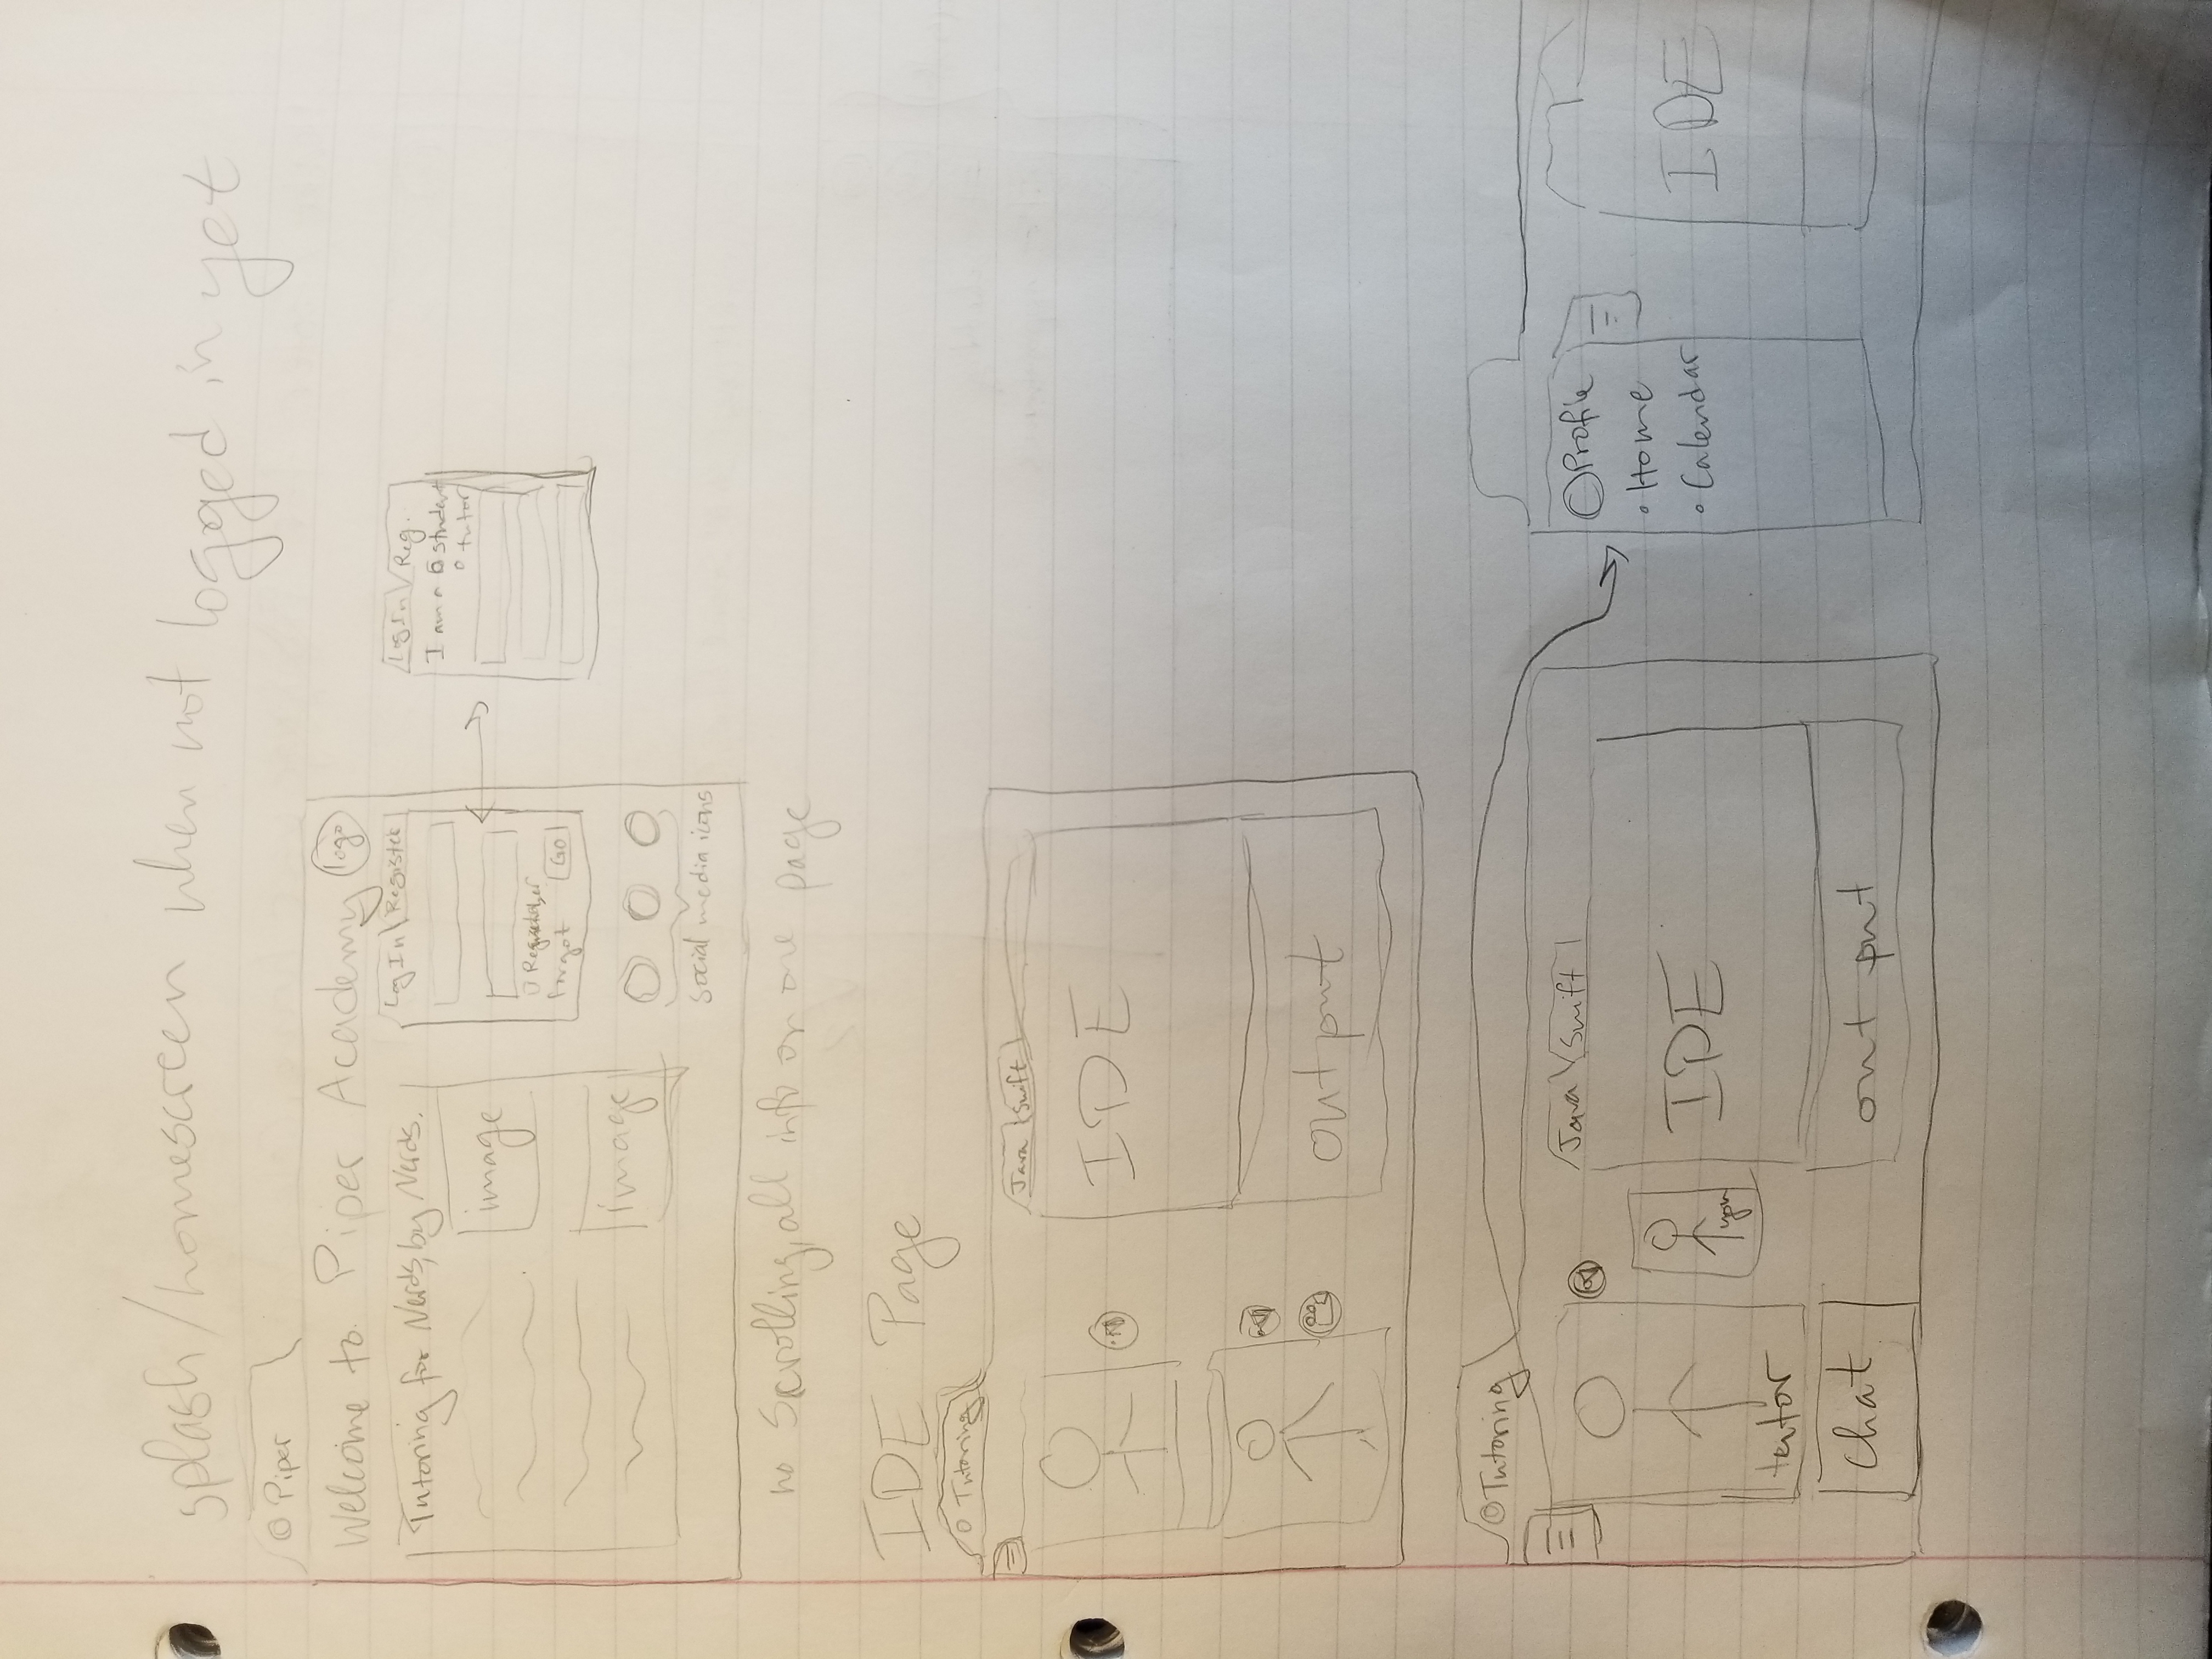 splash/homescreen when not logged in yet
Piper
Welcome to Piper Academy logo
Tutoring for Nerds, by Nerds.
image
image
Log In Register
forgot GO
social media icons
Log In Reg.
I am a student
tutor
no Scrolling, all info on one page
IDE Page
Tutoring
Java Swift
IDE
output
Tutoring
Java Swift
IDE
you
tutor
Chat
output
Profile
Home
Calendar
IDE